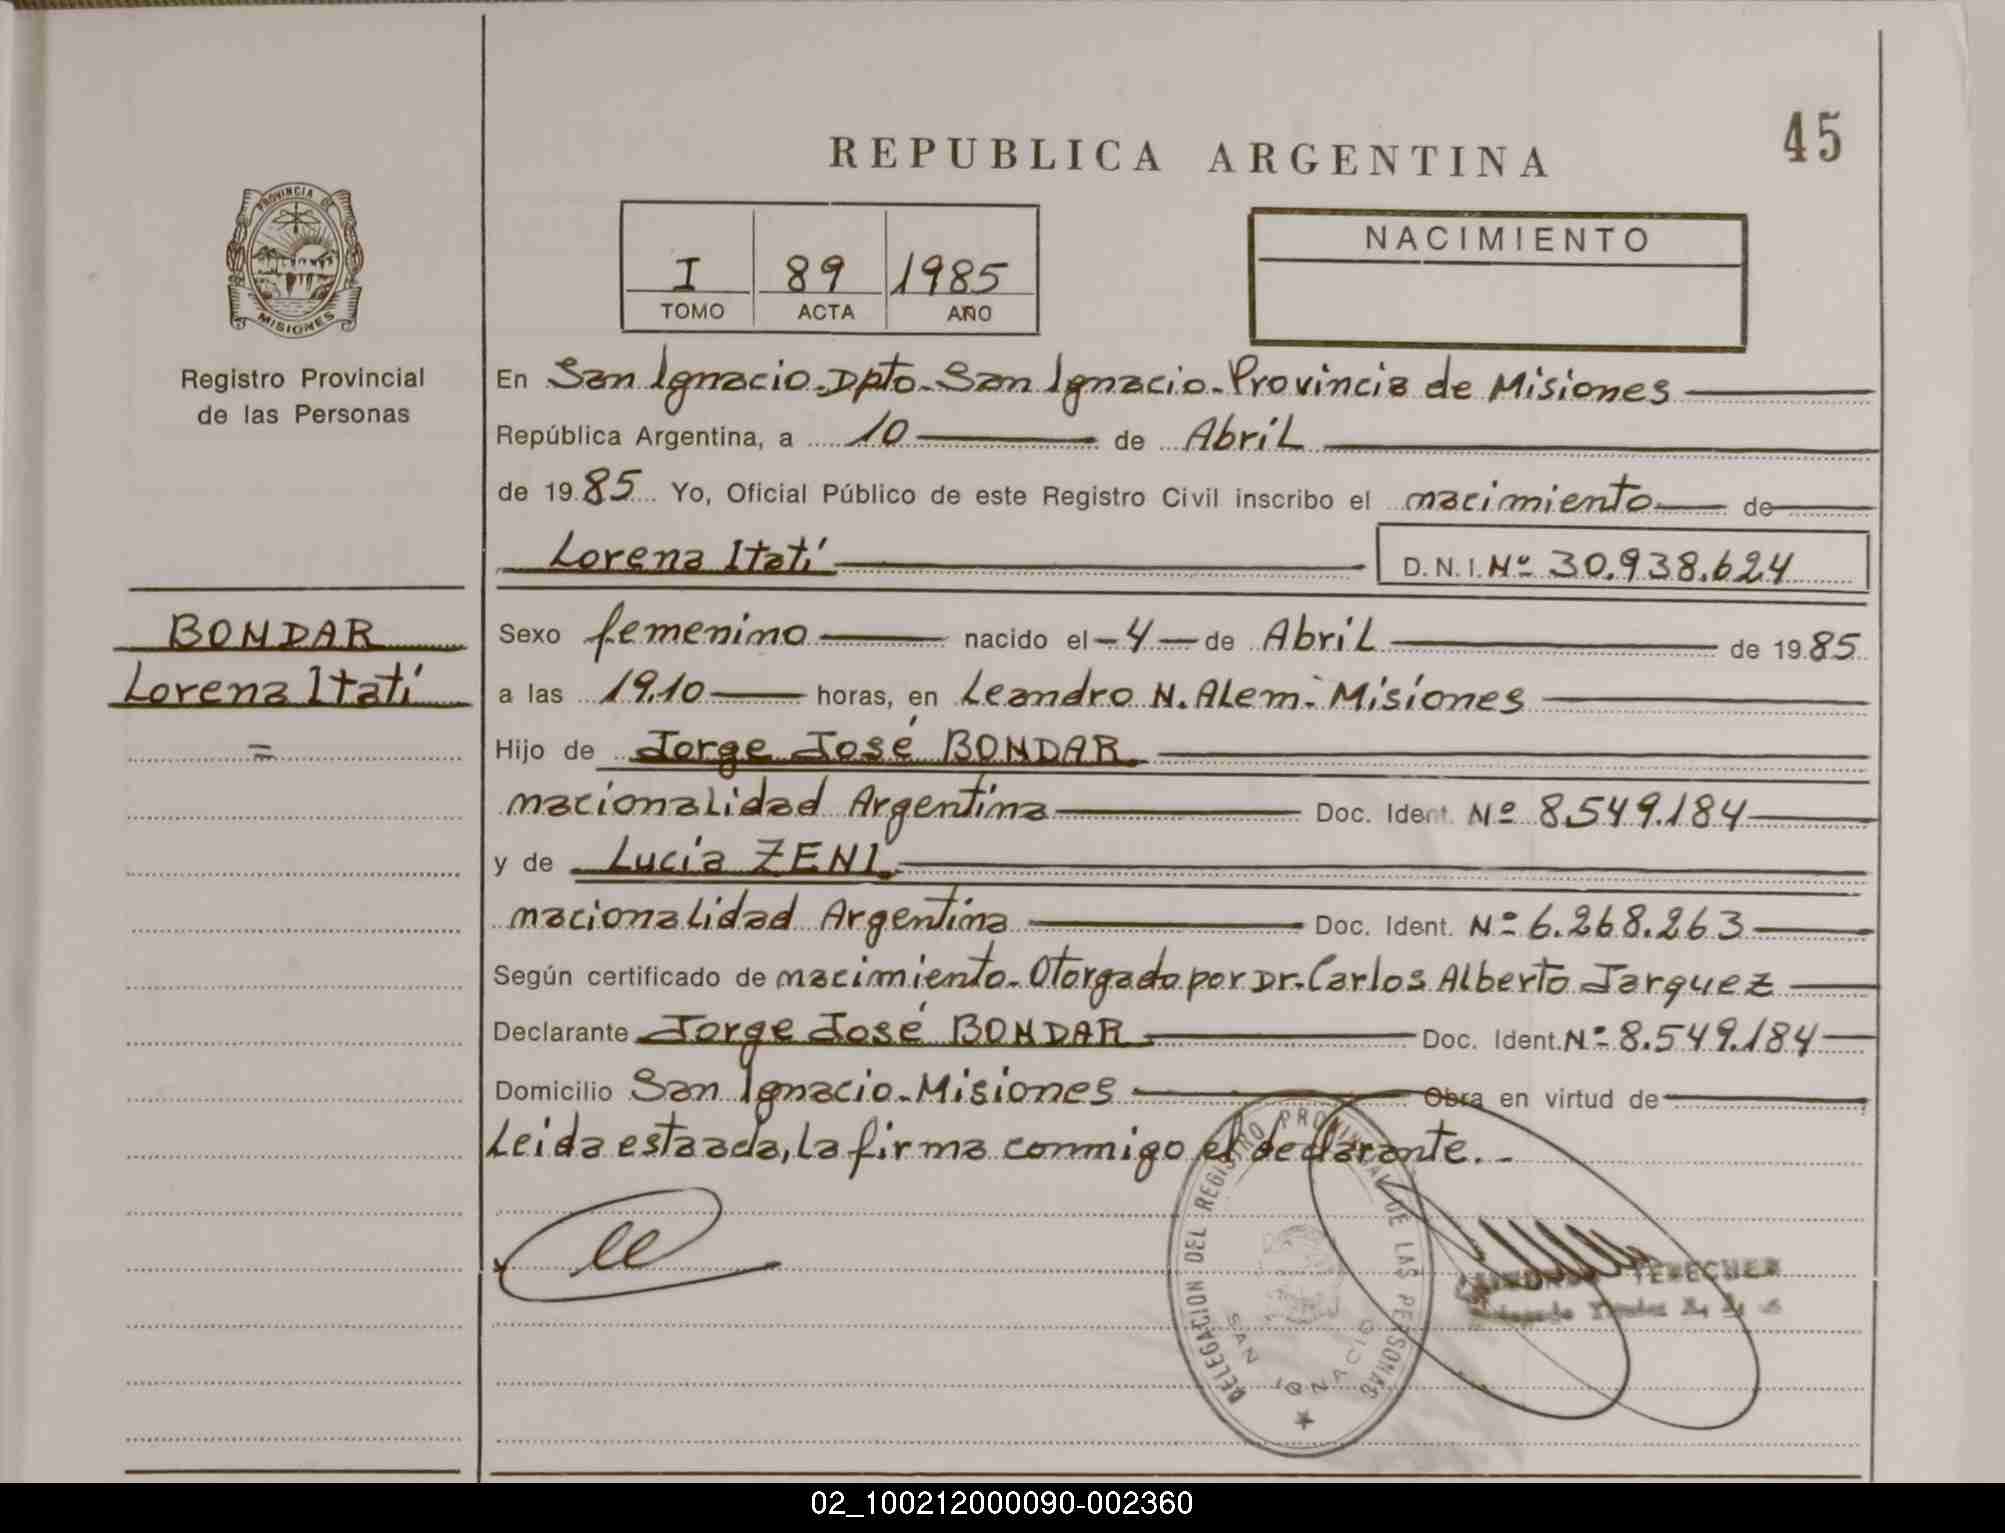 45
REPUBLICA ARGENTINA
PROVINCIA DE
MISIONES
Registro Provincial
de las Personas
I 89 1985
TOMO ACTA AÑO
NACIMIENTO
En San Ignacio-Dpto-San Ignacio-Provincia de Misiones
República Argentina, a 10 de Abril
de 1985 Yo, Oficial Público de este Registro Civil inscribo el nacimiento de
Lorena Itatí D.N.I. Nº 30.938.624
BONDAR
Lorena Itatí
=
Sexo femenino nacido el -4- de Abril de 1985
a las 19.10 horas, en Leandro N. Alem- Misiones
Hijo de Jorge José BONDAR
nacionalidad Argentina Doc. Ident. Nº 8.549.184
y de Lucía ZENI
nacionalidad Argentina Doc. Ident. Nº 6.268.263
Según certificado de nacimiento-Otorgado por Dr. Carlos Alberto Jarquez
Declarante Jorge José BONDAR Doc. Ident. Nº 8.549.184
Domicilio San Ignacio-Misiones Obra en virtud de
Leida esta acta, la firma conmigo el declarante.-
DELEGACION DEL REGISTRO PROVINCIAL DE LAS PERSONAS
SAN IGNACIO
02_100212000090-002360